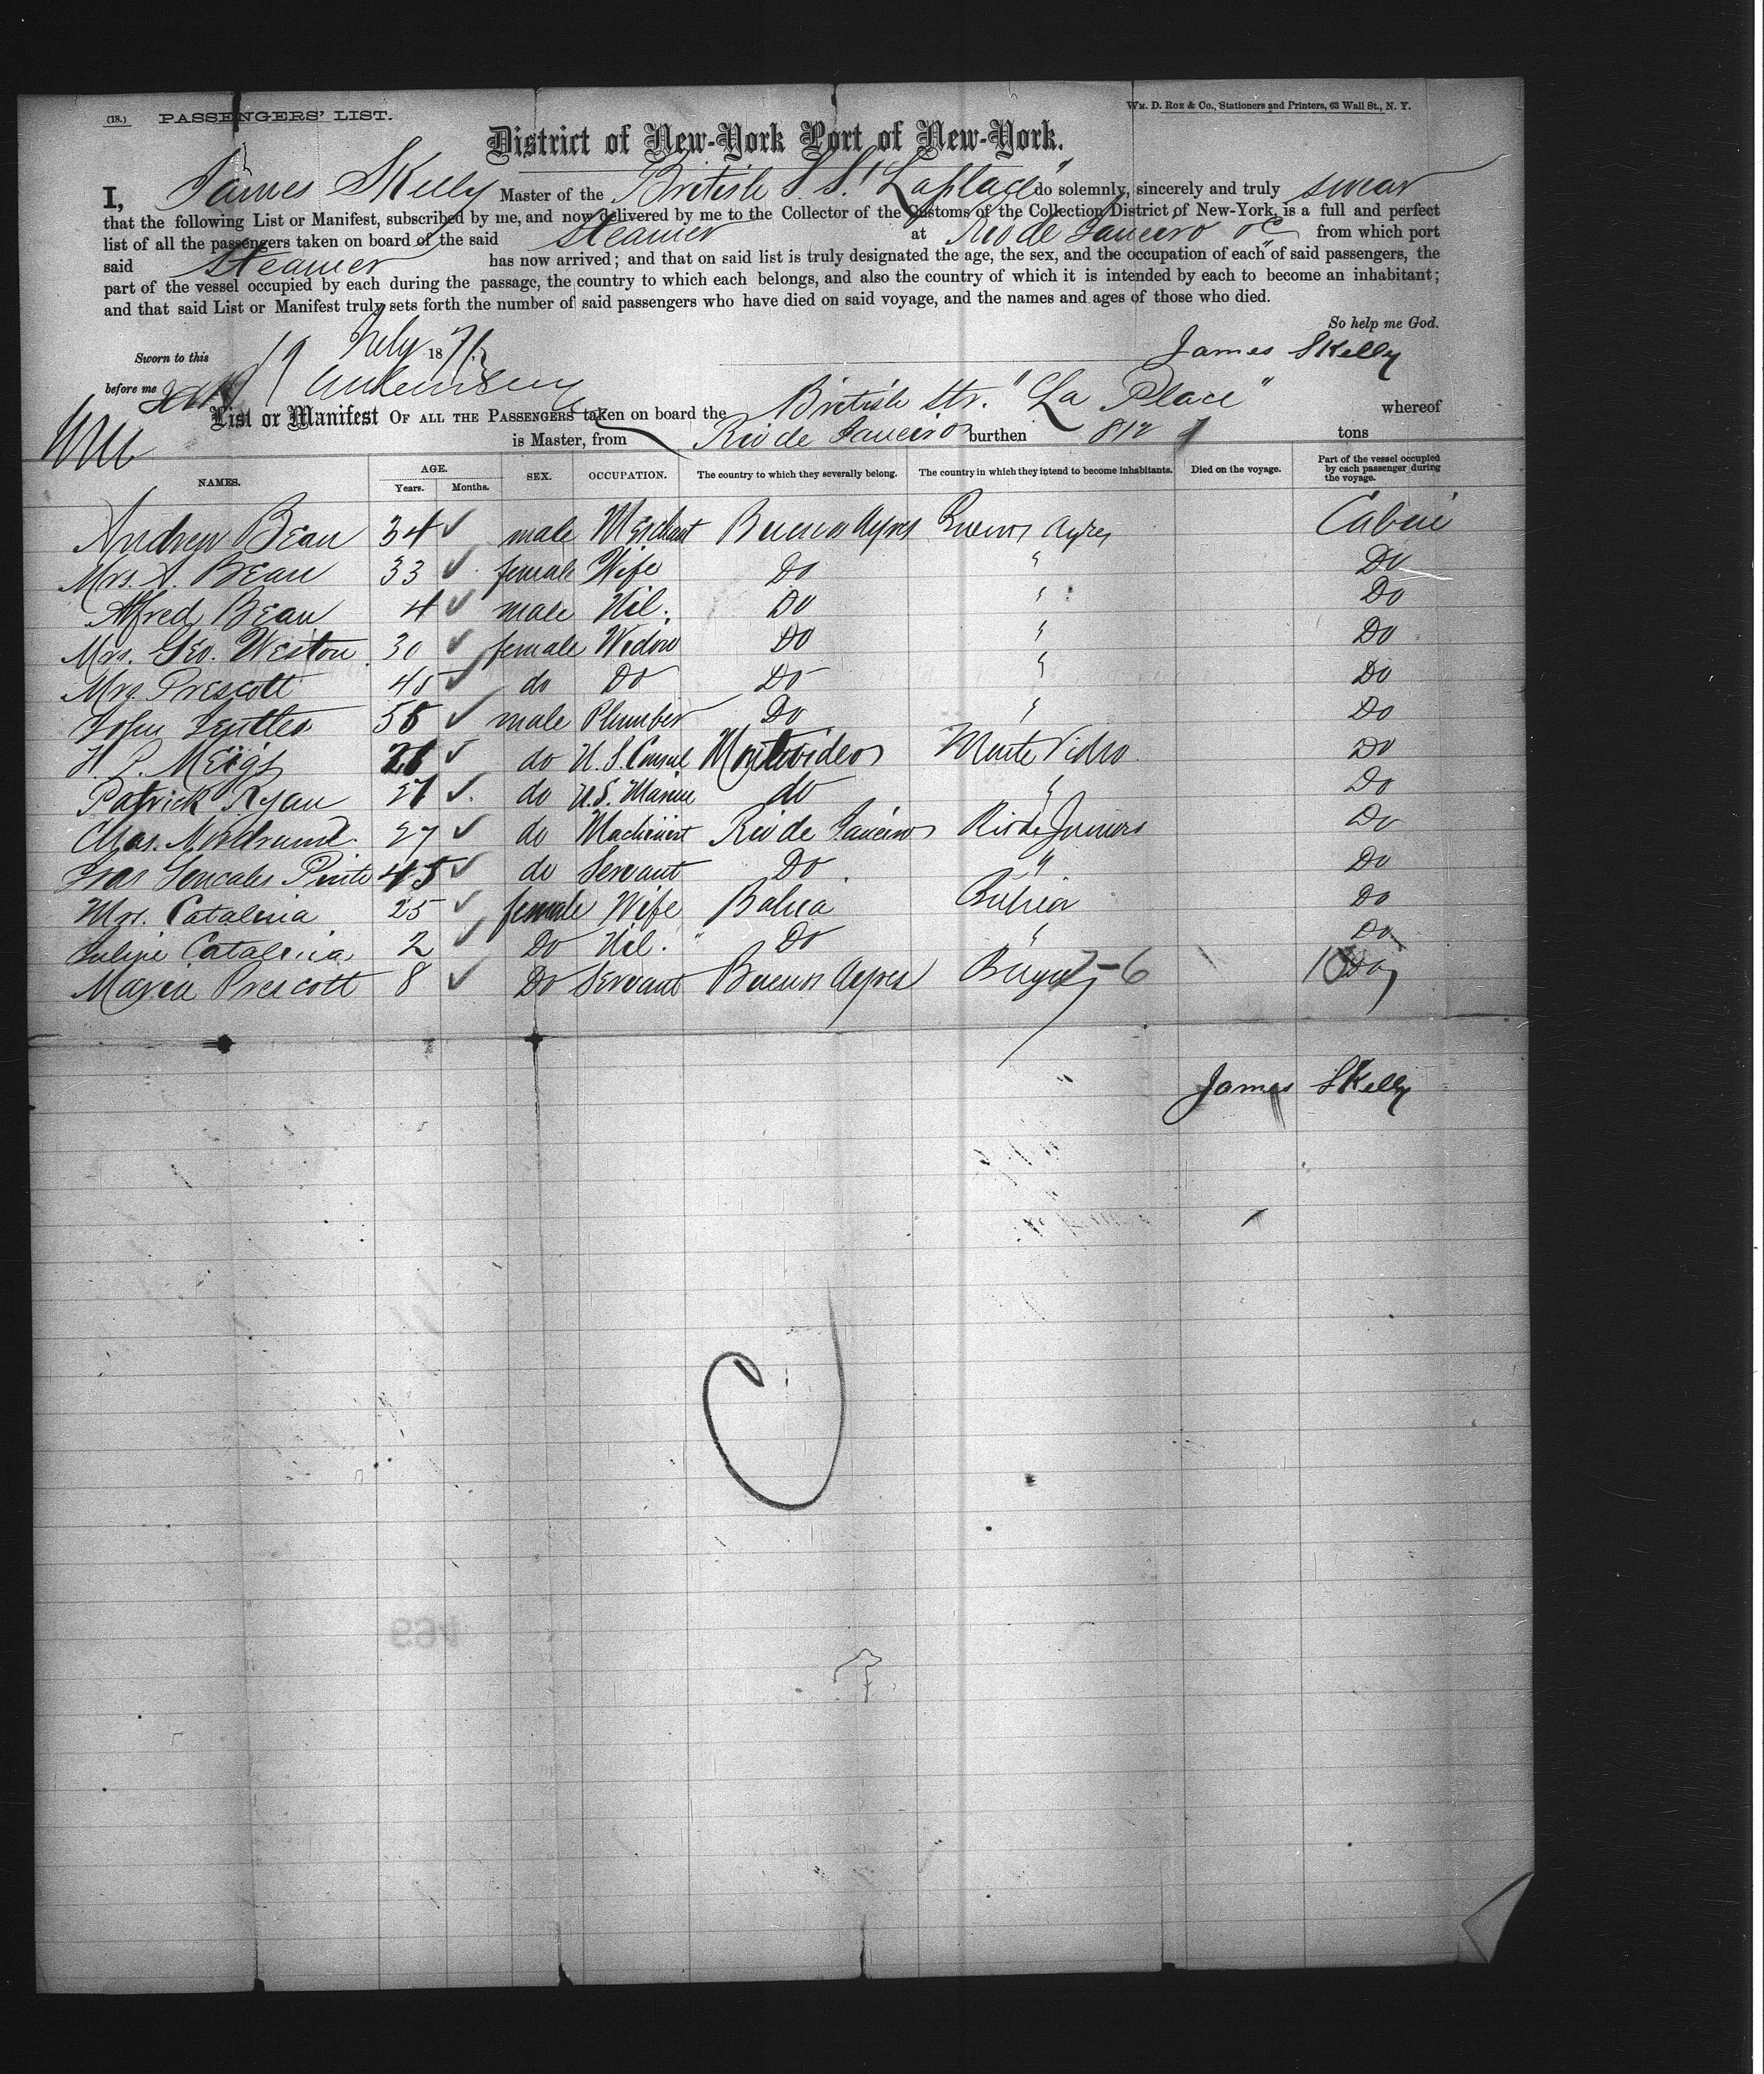 (18.) PASSENGERS' LIST.
Wm. D. Roe & Co., Stationers and Printers, 63 Wall St., N. Y.
District of New-York Port of New-York.
I, James Skelly Master of the British S S. "Laplace" do solemnly, sincerely and truly swear
that the following List or Manifest, subscribed by me, and now delivered by me to the Collector of the Customs of the Collection District of New-York, is a full and perfect
list of all the passengers taken on board of the said Steamer at Rio de Janeiro &c from which port
said Steamer has now arrived; and that on said list is truly designated the age, the sex, and the occupation of each of said passengers, the
part of the vessel occupied by each during the passage, the country to which each belongs, and also the country of which it is intended by each to become an inhabitant;
and that said List or Manifest truly sets forth the number of said passengers who have died on said voyage, and the names and ages of those who died.
So help me God.
Sworn to this 19 July 187
James Skelly
before me
List or Manifest OF ALL THE PASSENGERS taken on board the British Str. "La Place" whereof
is Master, from Rio de Janeiro burthen 812 tons
NAMES. AGE. Years. Months. SEX. OCCUPATION. The country to which they severally belong. The country in which they intend to become inhabitants. Died on the voyage. Part of the vessel occupied by each passenger during the voyage.
Andrew Bean 34 male Merchant Buenos Ayres Buenos Ayres Cabin
Mrs. A. Bean 33 female Wife Do " Do
Alfred Bean 4 male Nil. Do " Do
Mrs. Geo. Weston 30 female Widow Do " Do
Mrs. Prescott 45 do Do Do " Do
John 55 male Plumber Do " Do
H. P. Meigs 26 do U. S. Consul Montevideo Monte Video Do
Patrick Ryan 21 do U.S. Marine do " Do
Chas. 27 do Machinist Rio de Janeiro Rio de Janeiro Do
Goncales Pinto 45 do Servant Do " Do
Mrs. Catalina 25 female Wife Bahia Bahia Do
Catalina 2 Do Nil. " Do " Do
Maria Prescott 8 Do Servant Buenos Ayres 7-6 10 Do
James Skelly